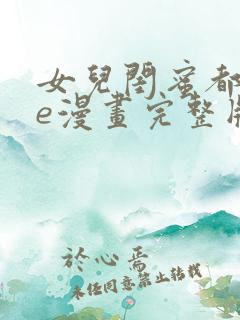 女兒閨蜜都
e漫畫完整
於心焉
未经同意禁止转载